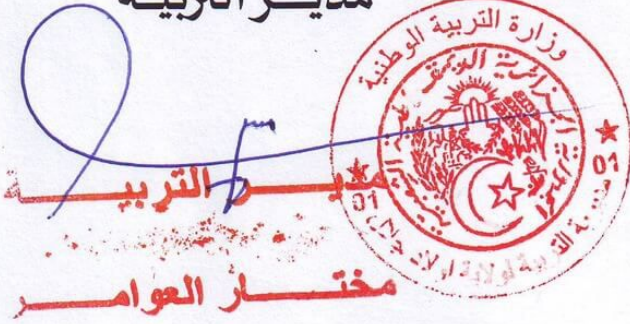 مديـر التربيـة
وزارة التربية الوطنية
الجمهورية الجزائرية الديمقراطية الشعبية
01 مديرية التربية لولاية اولاد جلال 01
مديـــر التربيـــــة
مختـــــار العوامـــــر